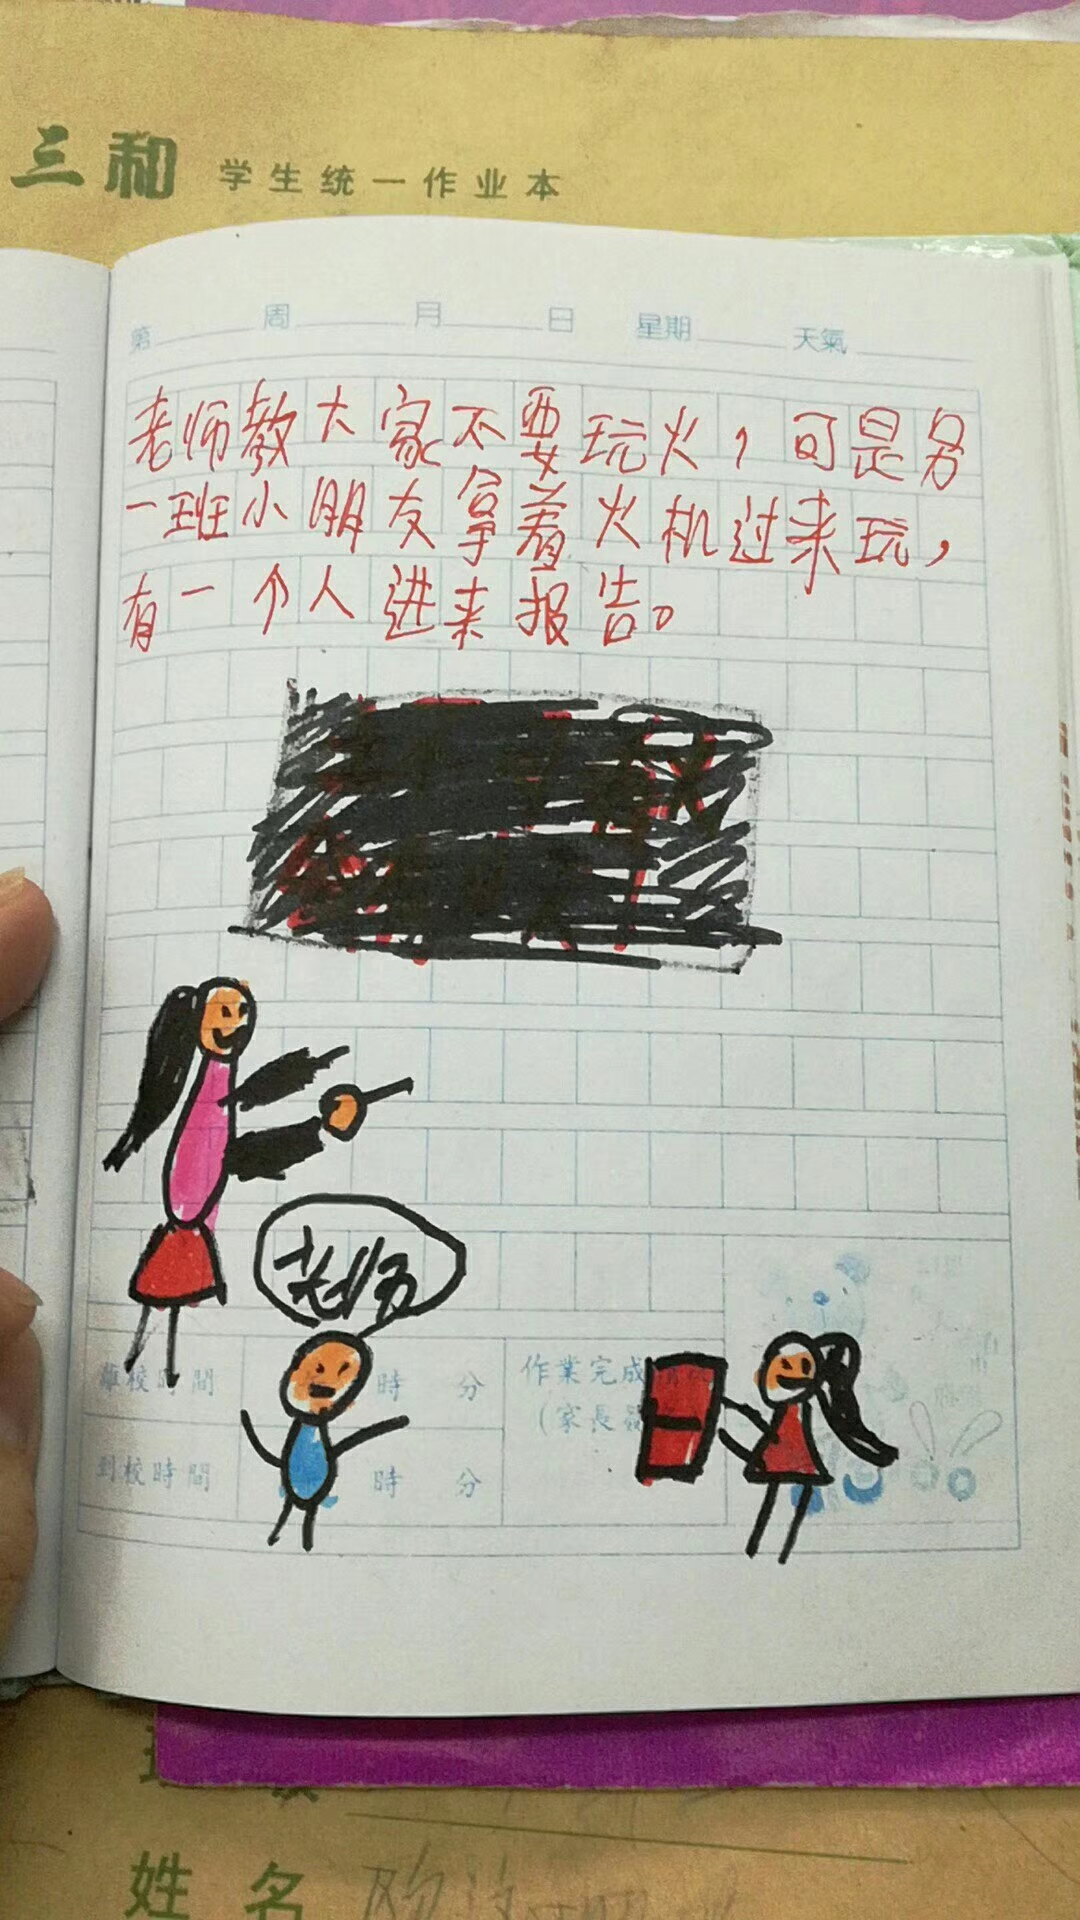 三和 学生统一作业本
第 周 月 日 星期 天氣
老师教大家不要玩火，可是另
一班小朋友拿着火机过来玩，
有一个人进来报告。
老师
離校時間 時 分 作業完成
（家長
到校時間 時 分
姓名